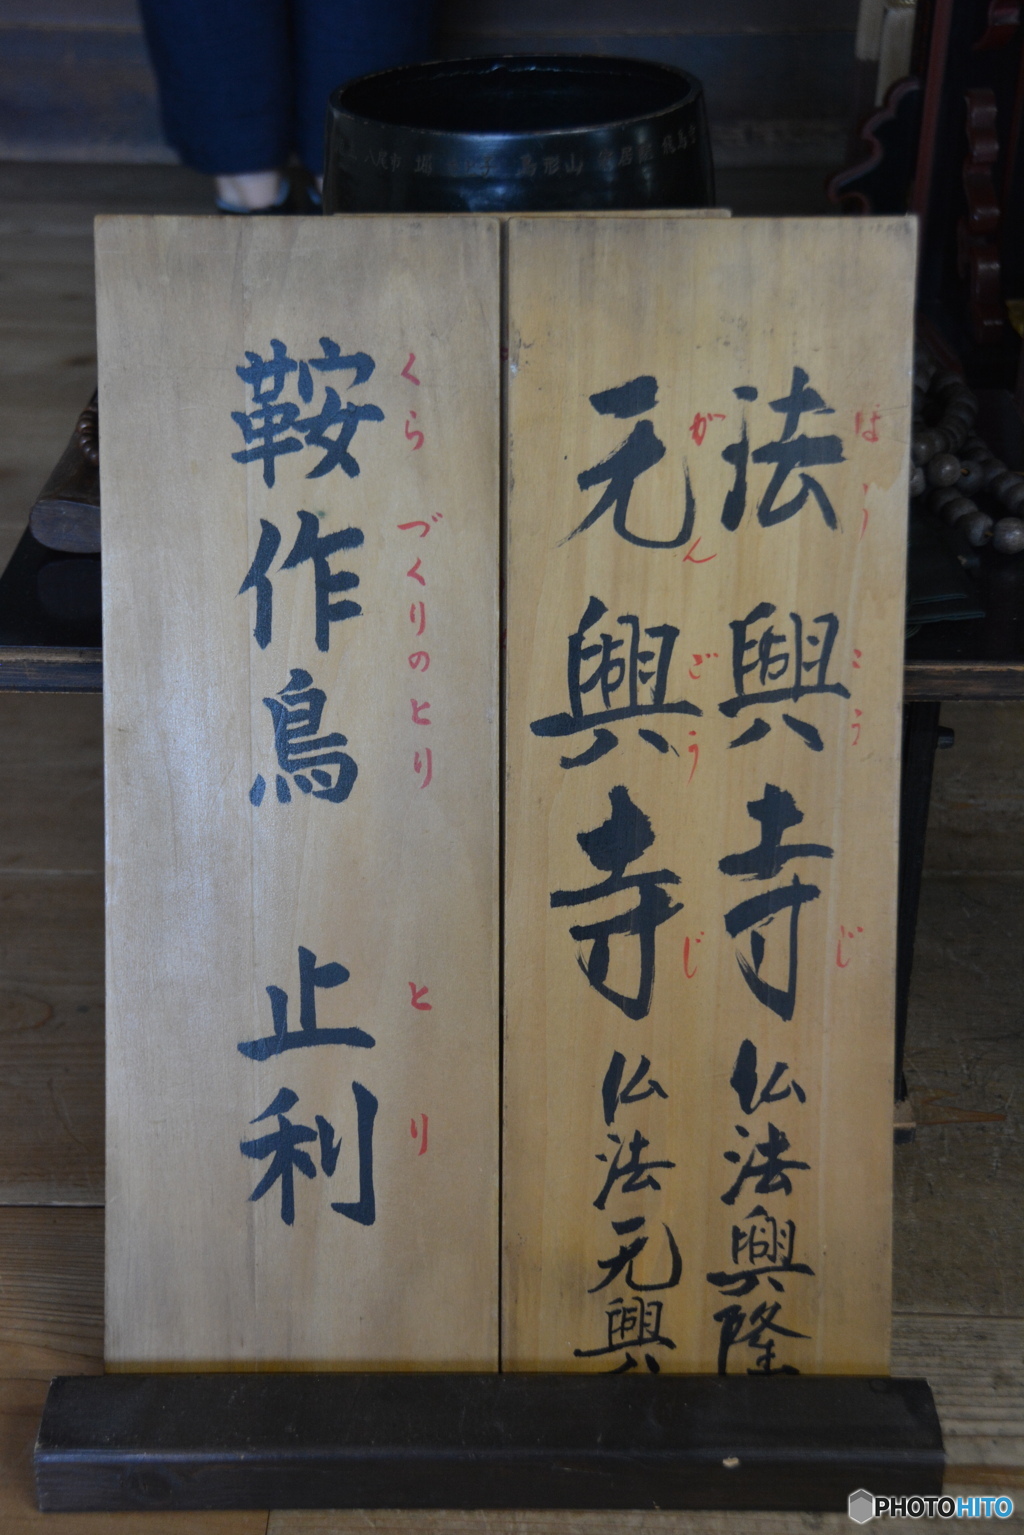 法興寺 仏法興隆
ほうこうじ
元興寺 仏法元興
がんごうじ
鞍作鳥 止利
くらづくりのとり とり
八尾市
鳥形山
PHOTOHITO